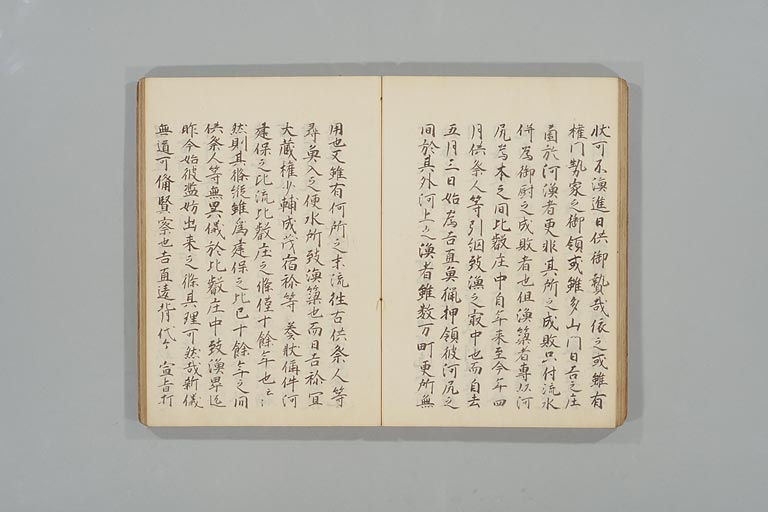 状可不漁進日供御贄哉依之或雖有
権門勢家之御領或雖多山門日吉之庄
薗於河漁者更非其所之成敗只付流水
併為御厨之成敗者也但漁簗者専以河
尻為本之間比叡庄中自年来至今年四
月供祭人等引網致漁之最中也而自去
五月三日始為吉直魚猟押領彼河尻之
間於其外河上之漁者雖数万町更所無
用也又雖有何所之末流往古供祭人等
尋魚入之便水所致漁簗也而日吉祢宜
大蔵権少輔成茂宿祢等 奏状偁件河
建保之比流比叡庄之條僅十餘年也云々
然則其俗縦雖為建保之比已十餘年之間
供祭人等無異儀於比叡庄中致漁畢迄
昨今始彼濫妨出来之條其理可然哉新儀
無道可備賢察也吉直違背代々 宣旨打